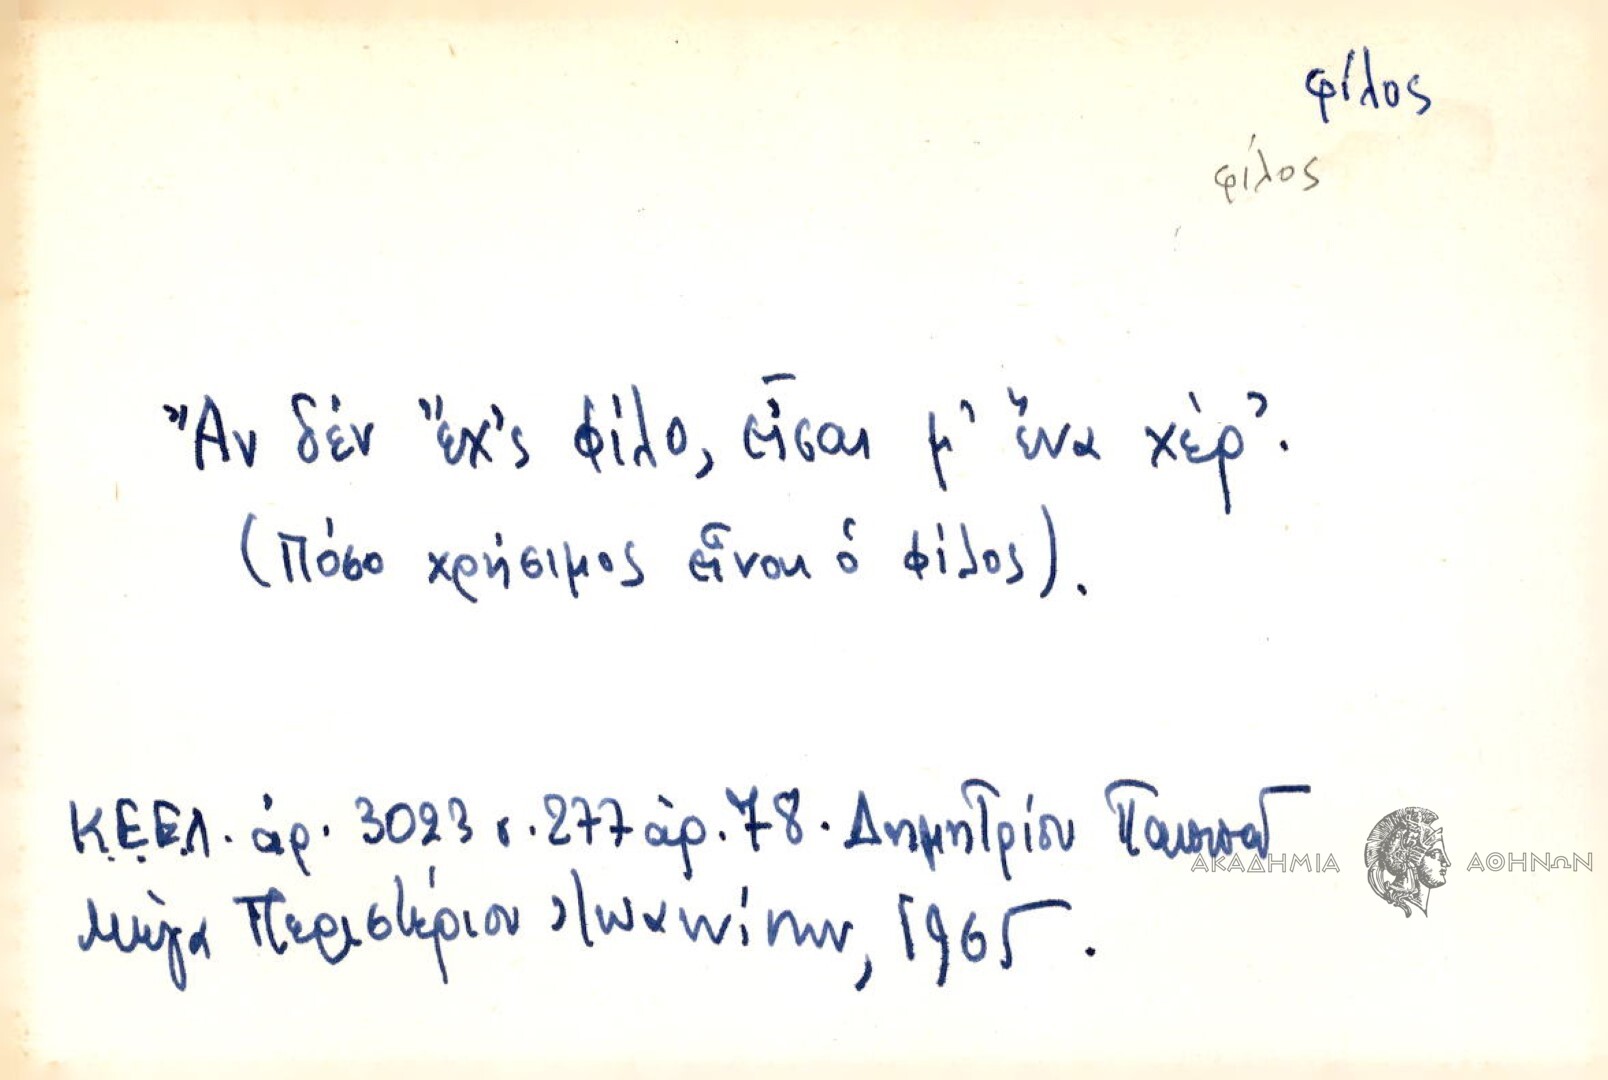 φίλος
φίλος
Ἄν δέν ἔχ'ς φίλο, εἶσαι μ' ἕνα χέρ'.
(Πόσο χρήσιμος εἶναι ὁ φίλος).
Κ.Ε.Ε.Λ. ἀρ. 3023 σ. 277 ἀρ. 78. Δημητρίου Παππᾶ
Μέγα Περιστέριον Ἰωαννίνων, 1965.
ΑΚΑΔΗΜΙΑ ΑΘΗΝΩΝ